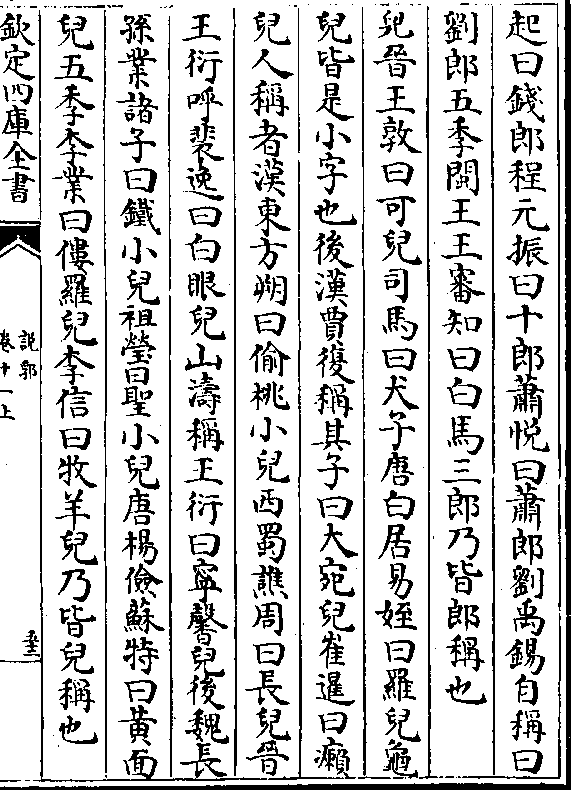 起曰錢郎程元振曰十郎蕭悅曰蕭郎劉禹錫自稱曰
劉郎五季閩王王審知曰白馬三郎乃皆郎稱也
兒晉王敦曰可兒司馬曰犬子唐白居易姪曰羅兒龜
兒皆是小字也後漢賈復稱其子曰大宛兒崔暹曰癩
兒人稱者漢東方朔曰偷桃小兒西蜀譙周曰長兒晉
王衍呼裴逸曰白眼兒山濤稱王衍曰寧馨兒後魏長
孫業諸子曰鐵小兒祖瑩曰聖小兒唐楊儉蘇特曰黃面
兒五季李業曰僂羅兒李信曰牧羊兒乃皆兒稱也
欽定四庫全書
説郛
卷十一上